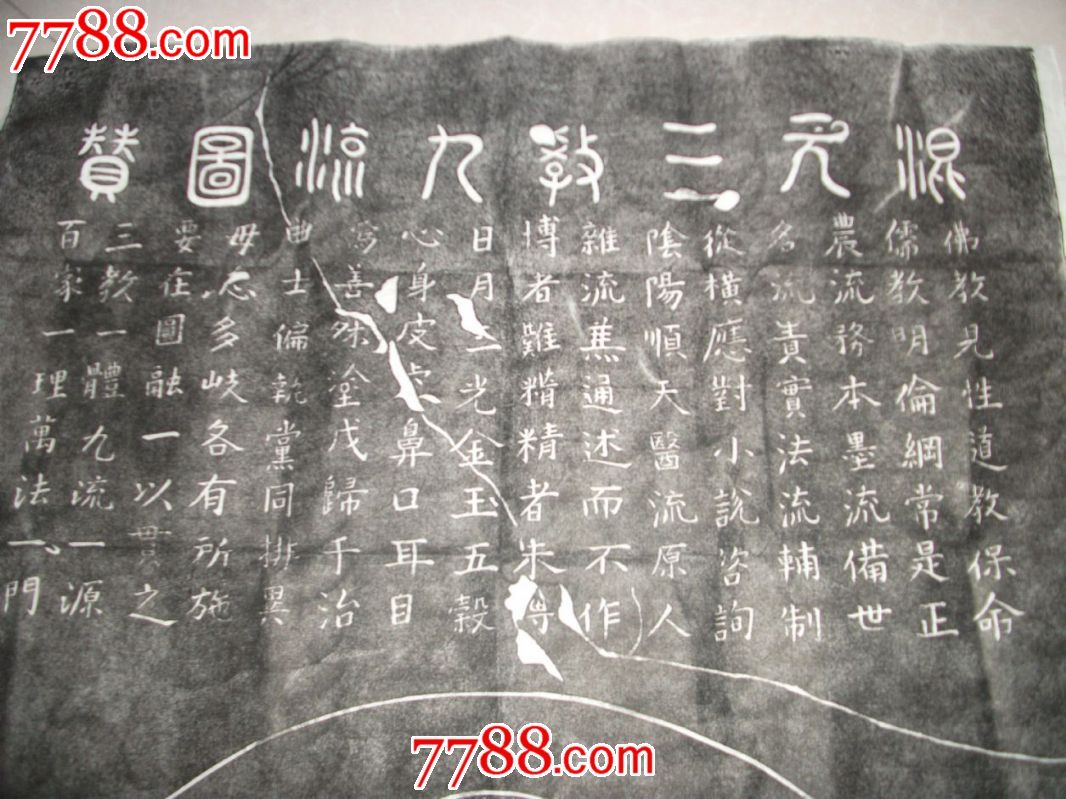 7788.com
混元三教九流圖贊
佛教見性道教保命
儒教明倫綱常是正
農流務本墨流備世
名流責實法流輔制
從橫應對小說咨詢
陰陽順天醫流原人
雜流蕉通述而不作
博者難精精者未博
日月三光金玉五穀
心身皮膚鼻口耳目
為善殊塗咸歸于治
曲士偏執黨同排異
毋忘多岐各有所施
要在圖融一以貫之
三教一體九流一源
百家一理萬法一門
7788.com